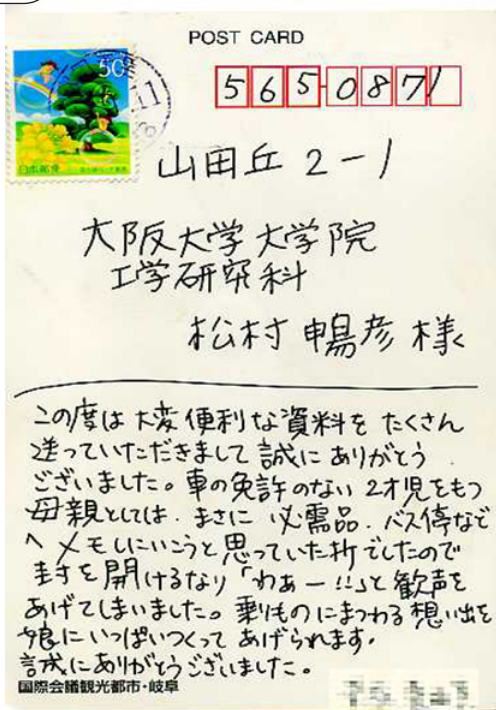 POST CARD
50
日本郵便
565-0871
山田丘 2-1
大阪大学大学院
工学研究科
松村 暢彦 様
この度は大変便利な資料をたくさん
送っていただきまして誠にありがとう
ございました。車の免許のない2才児をもつ
母親としては、まさに必需品。バス停など
へメモしにいこうと思っていた折でしたので
封を開けるなり「わぁー!!」と歓声を
あげてしまいました。乗りものにまつわる想い出を
娘にいっぱいつくってあげられます。
誠にありがとうございました。
国際会議観光都市・岐阜